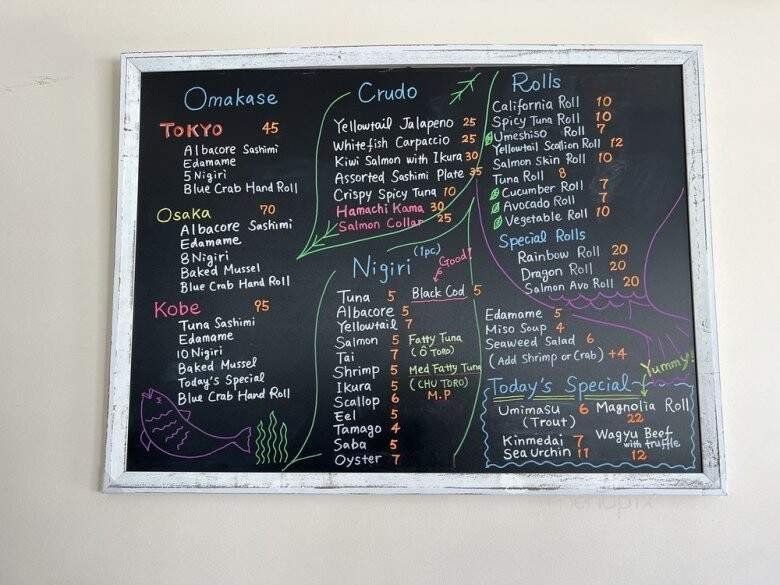 Omakase
TOKYO 45
Albacore Sashimi
Edamame
5 Nigiri
Blue Crab Hand Roll
Osaka 70
Albacore Sashimi
Edamame
8 Nigiri
Baked Mussel
Blue Crab Hand Roll
Kobe 95
Tuna Sashimi
Edamame
10 Nigiri
Baked Mussel
Today's Special
Blue Crab Hand Roll
Crudo
Yellowtail Jalapeno 25
Whitefish Carpaccio 25
Kiwi Salmon with Ikura 30
Assorted Sashimi Plate 35
Crispy Spicy Tuna 10
Hamachi Kama 30
Salmon Collar 25
Nigiri (1pc)
Good!
Tuna 5
Black Cod 5
Albacore 5
Yellowtail 7
Salmon 5
Tai 7
Shrimp 5
Ikura 5
Scallop 6
Eel 5
Tamago 4
Saba 5
Oyster 7
Fatty Tuna
(Ō TORO)
Med Fatty Tuna
(CHU TORO)
M.P
Rolls
California Roll 10
Spicy Tuna Roll 10
Umeshiso Roll 7
Yellowtail Scallion Roll 12
Salmon Skin Roll 10
Tuna Roll 8
Cucumber Roll 7
Avocado Roll 7
Vegetable Roll 10
Special Rolls
Rainbow Roll 20
Dragon Roll 20
Salmon Avo Roll 20
Edamame 5
Miso Soup 4
Seaweed Salad 6
(Add Shrimp or Crab) +4
Yummy!
Today's Special
Umimasu 6
(Trout)
Kinmedai 7
Sea Urchin 11
Magnolia Roll
22
Wagyu Beef
with truffle
12